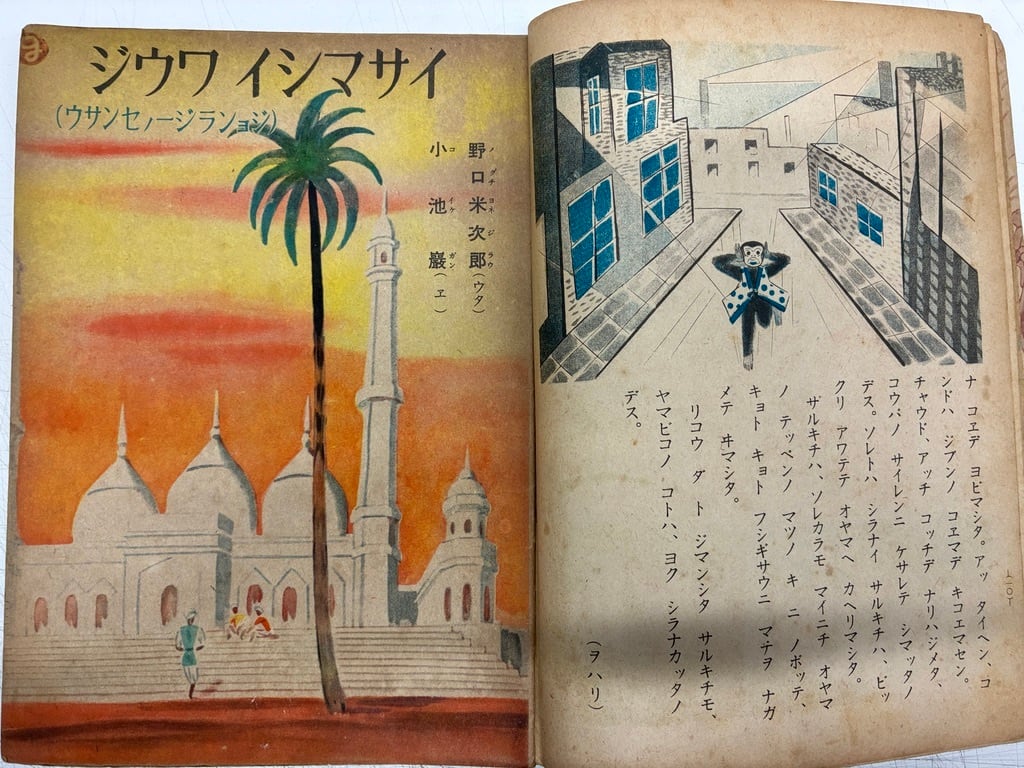 ナ コヱデ ヨビマシタ。アッ タイヘン、コ
ンドハ ジブンノ コヱマデ キコエマセン。
チャウド、アッチ コッチデ ナリハジメタ、
コウバノ サイレンニ ケサレテ シマッタノ
デス。ソレトハ シラナイ サルキチハ、ビッ
クリ アワテテ オヤマヘ カヘリマシタ。
サルキチハ、ソレカラモ マイニチ オヤマ
ノ テッペンノ マツノ キ ニ ノボッテ、
キョト キョト フシギサウニ マチヲ ナガ
メテ ヰマシタ。
リコウ ダ ト ジマンシタ サルキチモ、
ヤマビコノ コトハ、ヨク シラナカッタノ
デス。
(ヲハリ)
イサマシイ ワウジ
(ジョンラジーノセンサウ)
野口米次郎(ウタ)
ノグチヨネジラウ
小池巖(ヱ)
コイケガン